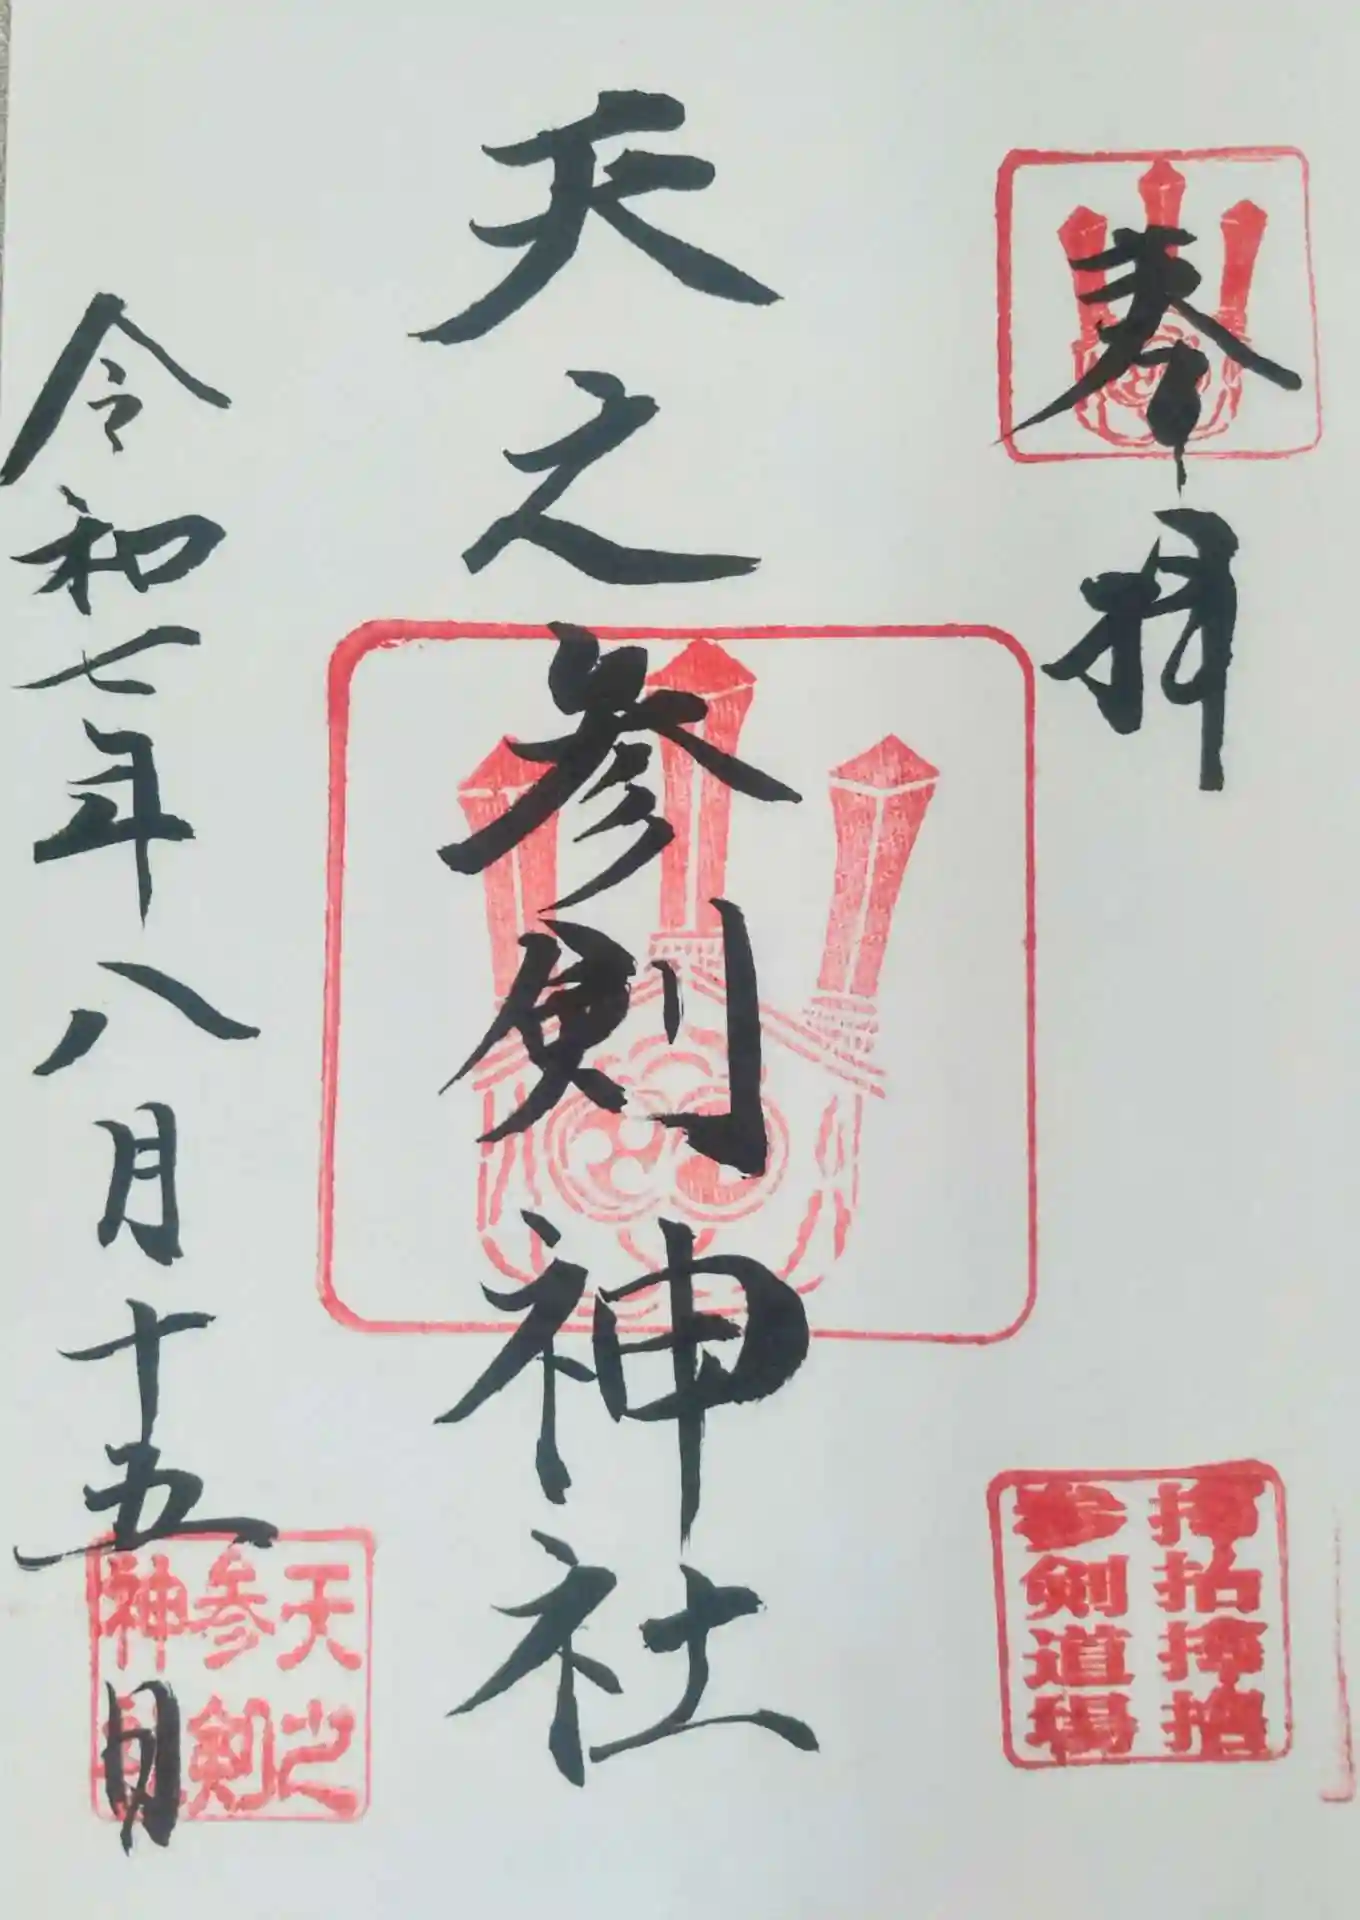 奉拝
参剣道場
天之参剣神社
令和七年八月十五日
天之
参剣
神